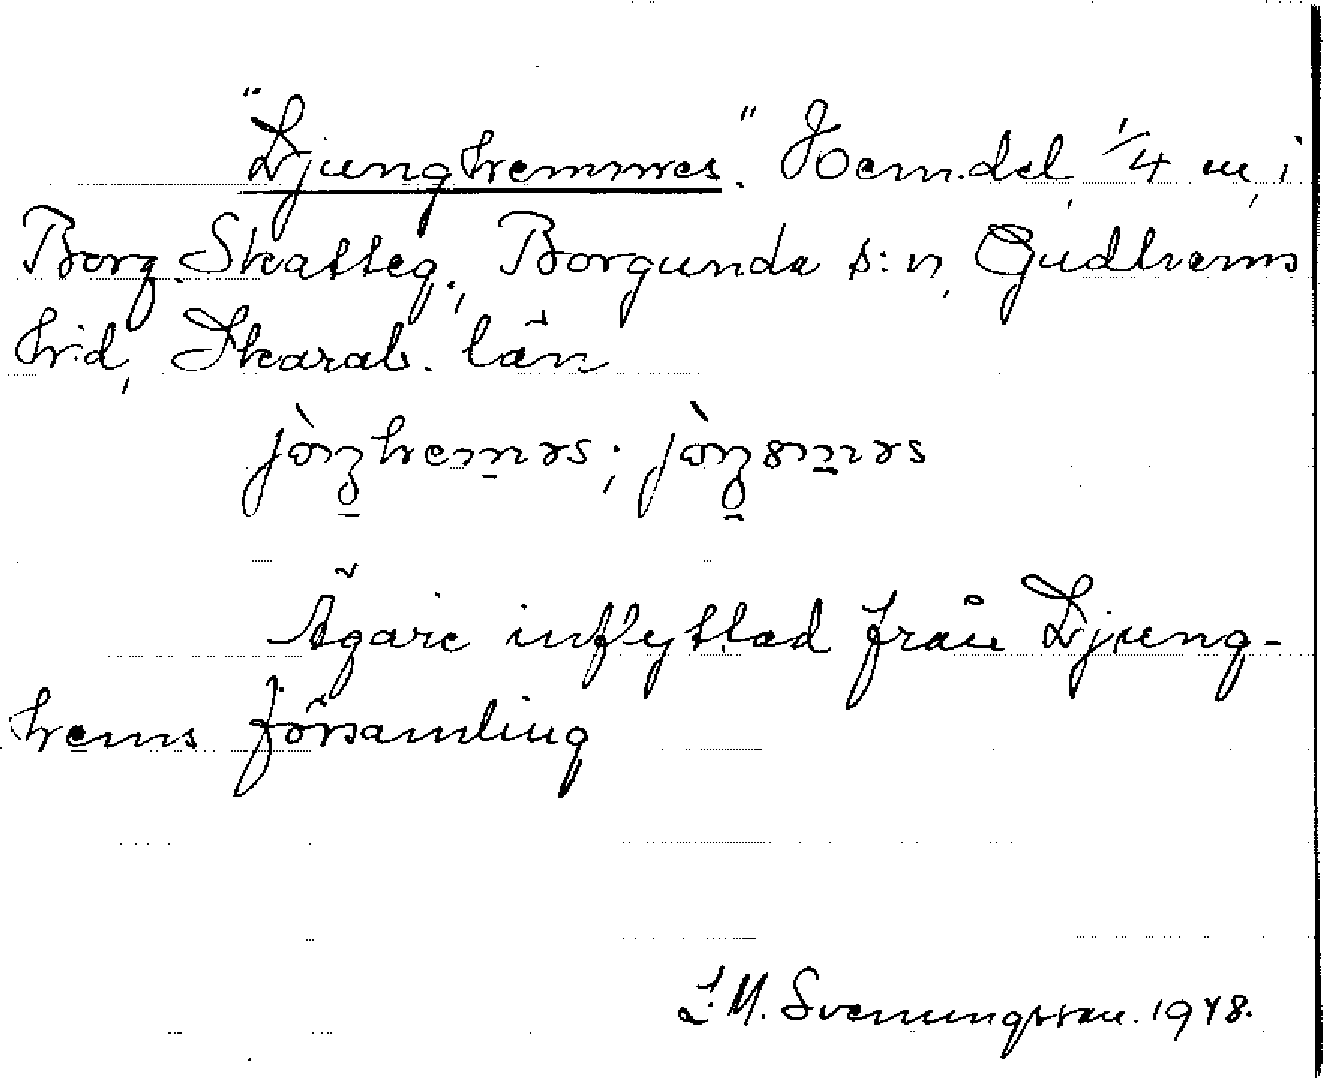 "Ljunghemmes." Hem.del 1/4 m, i
Borg. Skatteg., Borgunda s:n, Gudhems
h:d, Skarab. län
Ägare inflyttad från Ljung-
hems församling
S.M. Svenungsson. 1948.